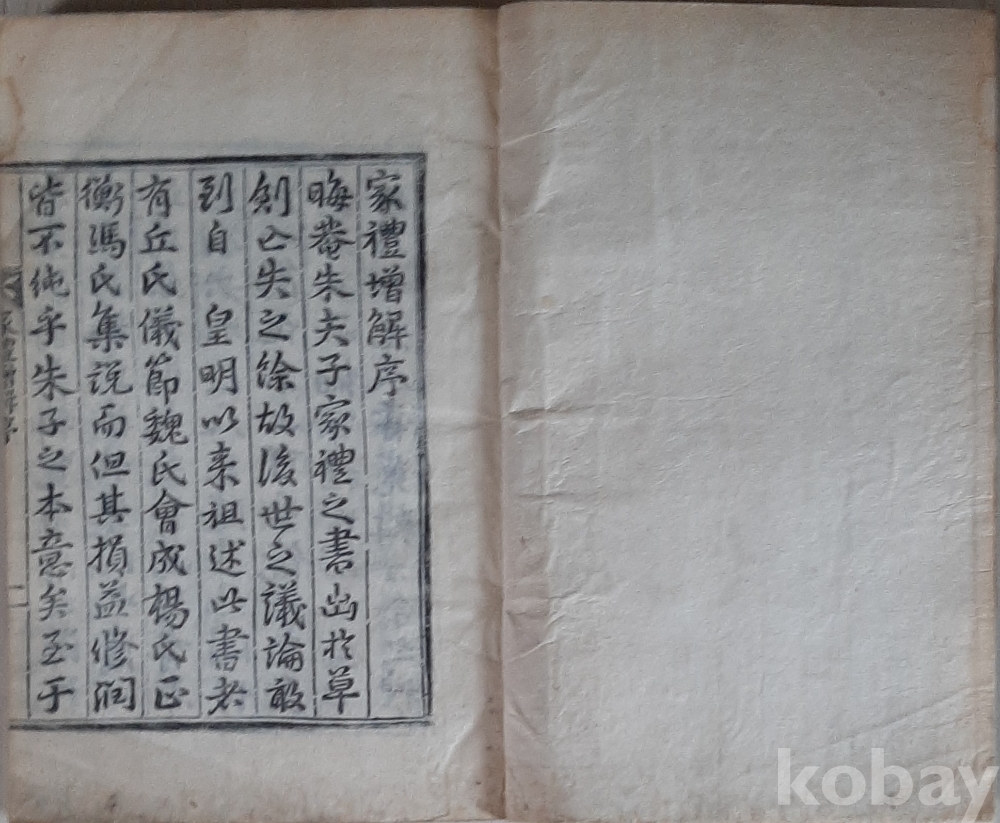 家禮增解序
晦菴朱夫子家禮之書出於草
創亡失之餘故後世之議論敢
到自 皇明以来祖述此書者
有丘氏儀節魏氏會成楊氏正
衡馮氏集說而但其損益修潤
皆不純乎朱子之本意矣至于
家禮增解序
kobay